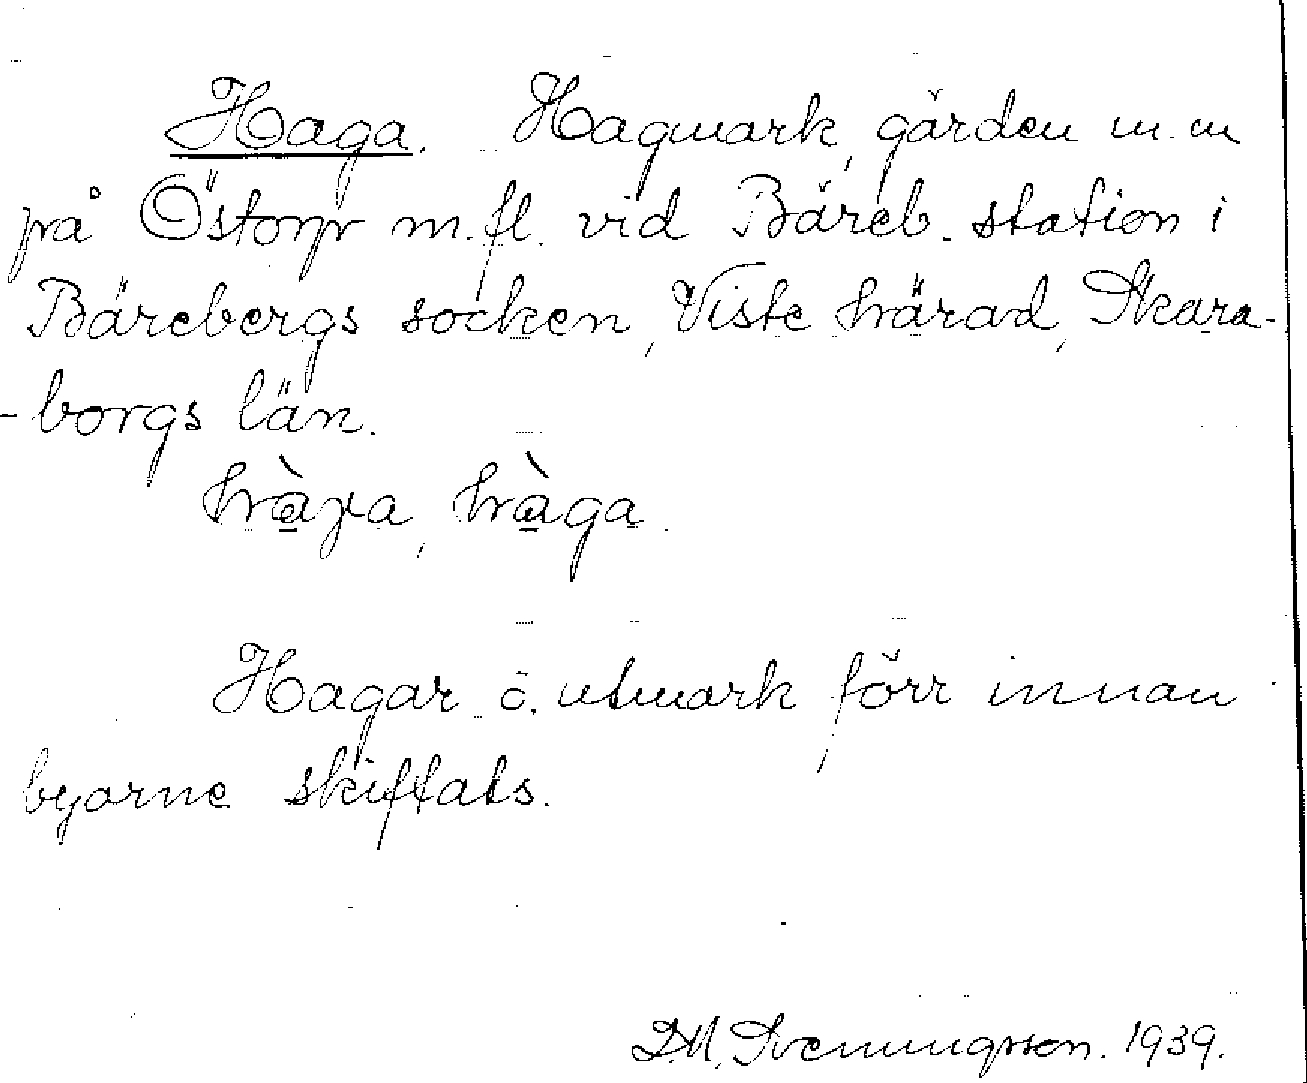 Haga. Hagmark, gärden m.m
på Östorp m.fl. vid Bäreb. station i
Bärebergs socken, Viste härad, Skara-
-borgs län.
hàɣa, hàga.
Hagar ö. utmark förr innan
byarne skiftats.
D.M. Svenningsson. 1939.